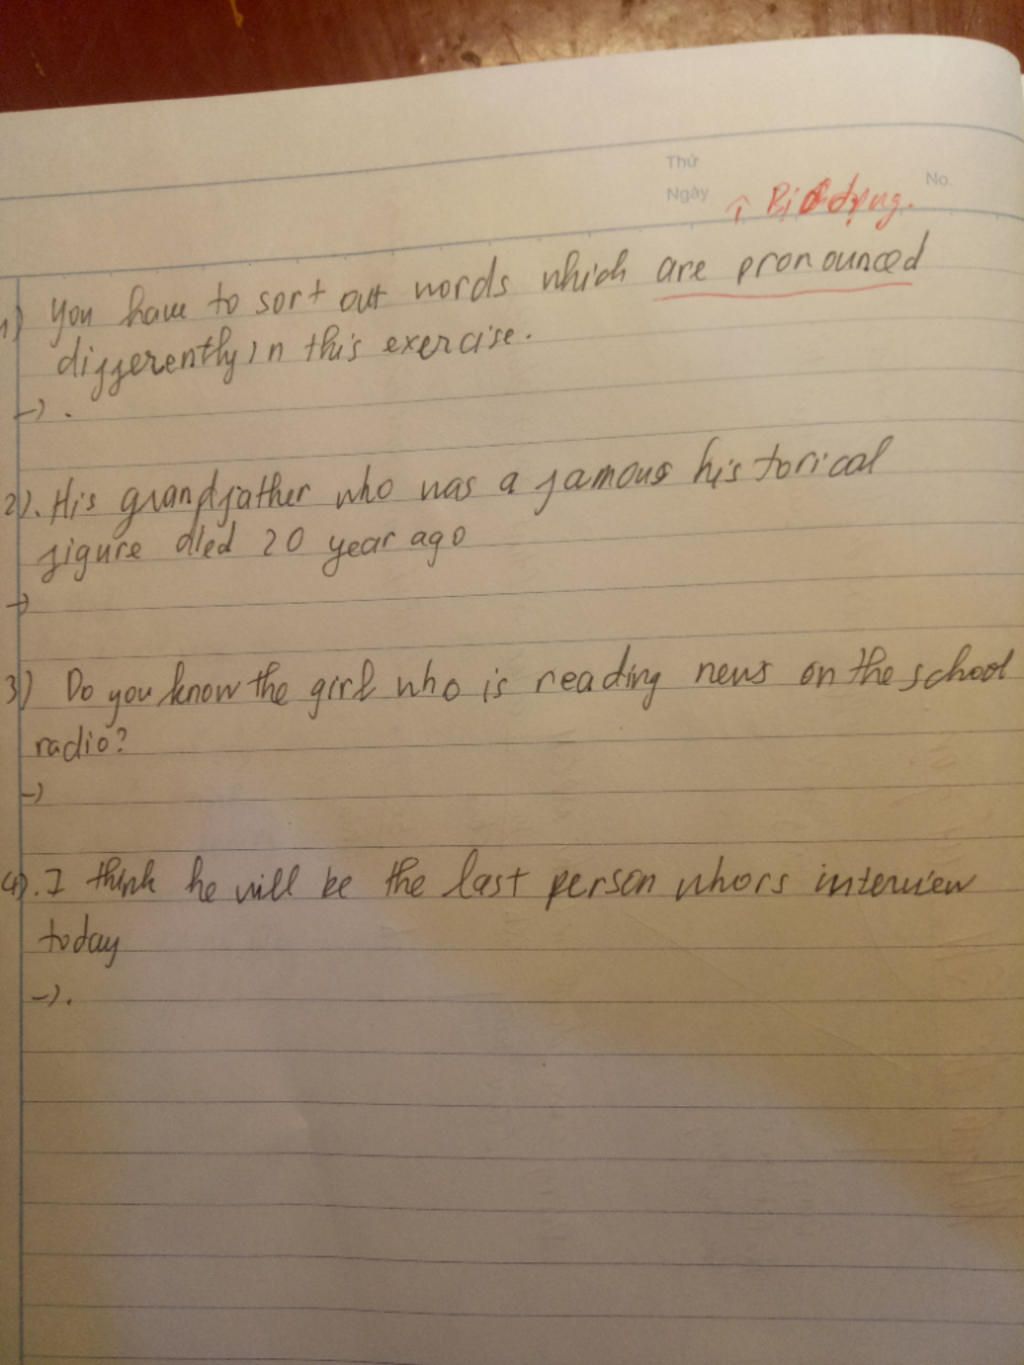 Thứ
Ngày
No.
↑ Bị động.
1) You have to sort out words which are pronounced
differently in this exercise.
→ .
2). His grandfather who was a famous historical
figure died 20 year ago
→
3) Do you know the girl who is reading news on the school
radio?
→
4). I think he will be the last person who is interview
today
→ .